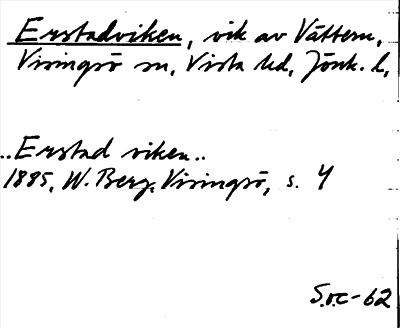 Erstadviken, vik av Vättern,
Visingsö sn, Vista hd, Jönk. l,
..Erstad viken..
1885, W. Berg, Visingsö, s. 4
S.v.C-62